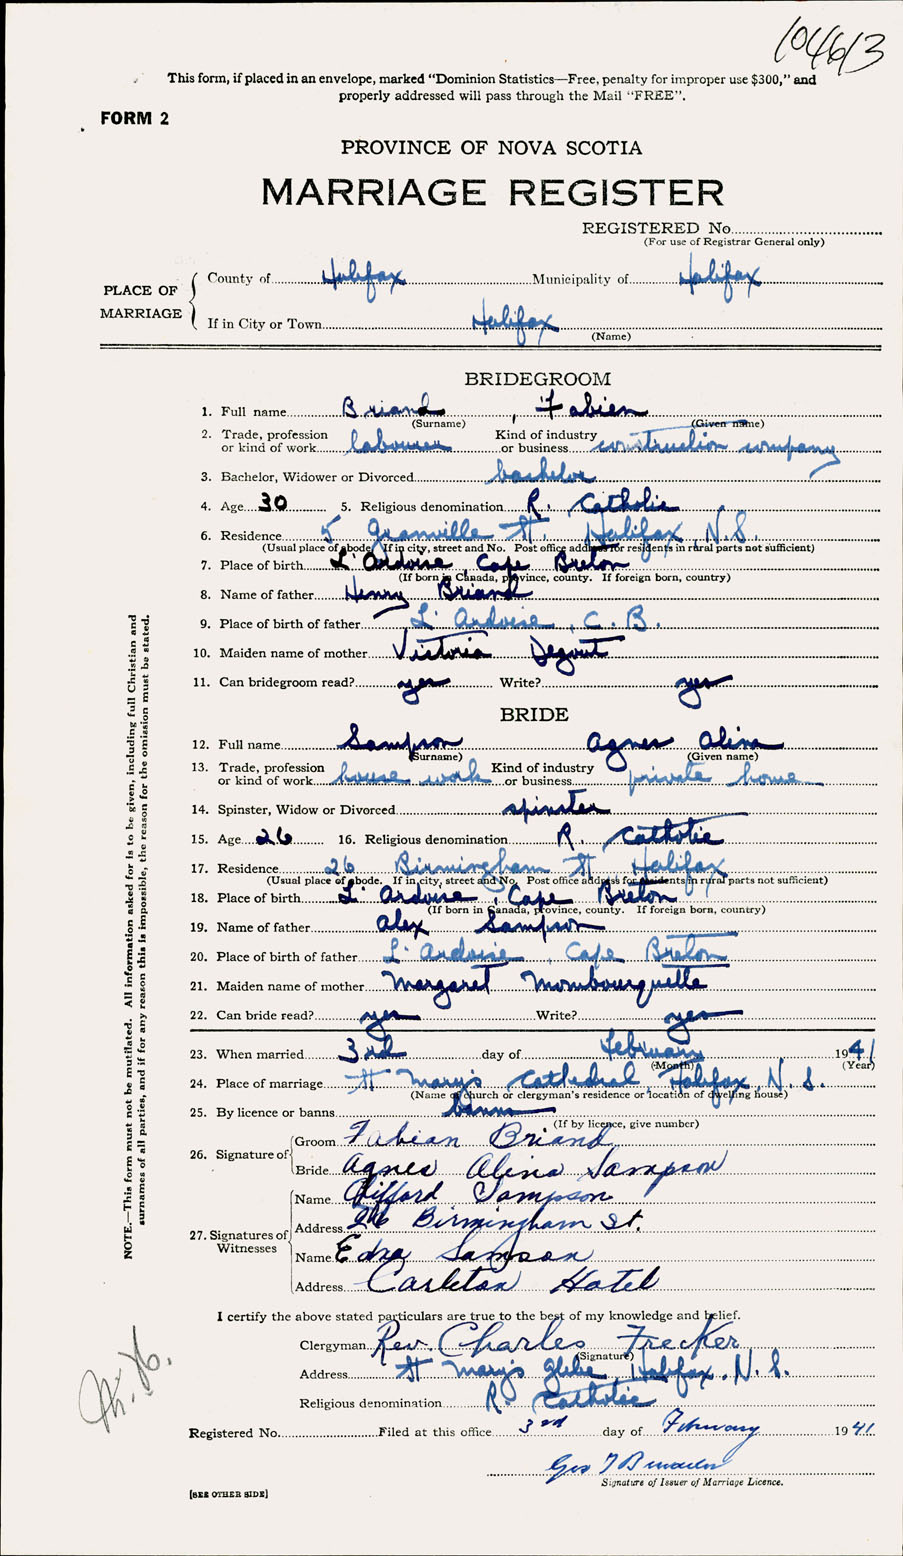 104613
This form, if placed in an envelope, marked "Dominion Statistics—Free, penalty for improper use $300," and
properly addressed will pass through the Mail "FREE".
FORM 2
PROVINCE OF NOVA SCOTIA
MARRIAGE REGISTER
REGISTERED No.
(For use of Registrar General only)
PLACE OF MARRIAGE
County of Halifax Municipality of Halifax
If in City or Town Halifax
(Name)
BRIDEGROOM
1. Full name Briand, Fabien
(Surname) (Given name)
2. Trade, profession or kind of work labourer Kind of industry or business construction company
3. Bachelor, Widower or Divorced bachelor
4. Age 30 5. Religious denomination R. Catholic
6. Residence 5 Granville St. Halifax, N.S.
(Usual place of abode. If in city, street and No. Post office address for residents in rural parts not sufficient)
7. Place of birth L'Ardoise, Cape Breton
(If born in Canada, province, county. If foreign born, country)
8. Name of father Henry Briand
9. Place of birth of father L'Ardoise, C.B.
10. Maiden name of mother Victoria Degout
11. Can bridegroom read? yes Write? yes
BRIDE
12. Full name Sampson Agnes Alina
(Surname) (Given name)
13. Trade, profession or kind of work house work Kind of industry or business private home
14. Spinster, Widow or Divorced spinster
15. Age 26 16. Religious denomination R. Catholic
17. Residence 26 Birmingham St Halifax
(Usual place of abode. If in city, street and No. Post office address for residents in rural parts not sufficient)
18. Place of birth L'Ardoise, Cape Breton
(If born in Canada, province, county. If foreign born, country)
19. Name of father Alex Sampson
20. Place of birth of father L'Ardoise, Cape Breton
21. Maiden name of mother Margaret Mombourquette
22. Can bride read? yes Write? yes
23. When married 3rd day of February 1941
(Month) (Year)
24. Place of marriage St Mary's Cathedral, Halifax, N.S.
(Name of church or clergyman's residence or location of dwelling house)
25. By licence or banns banns
(If by licence, give number)
26. Signature of
Groom Fabian Briand
Bride Agnes Alina Sampson
27. Signatures of Witnesses
Name Clifford Sampson
Address 26 Birmingham St.
Name Edna Samson
Address Carleton Hotel
I certify the above stated particulars are true to the best of my knowledge and belief.
Clergyman Rev. Charles Frecker
(Signature)
Address St Mary's Glebe, Halifax, N.S.
Religious denomination R. Catholic
Registered No. Filed at this office 3rd day of February 1941
Geo
Signature of Issuer of Marriage Licence.
[SEE OTHER SIDE]
NOTE.—This form must not be mutilated. All information asked for is to be given, including full Christian and
surnames of all parties, and if for any reason this is impossible, the reason for the omission must be stated.